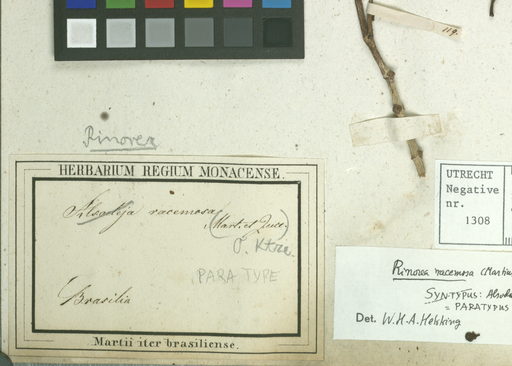 119.
Rinorea
HERBARIUM REGIUM MONACENSE.
Alsodeja racemosa
(Mart. et Zucc.)
O. Ktze.
PARATYPE
Brasilia
Martii iter brasiliense.
UTRECHT
Negative
nr.
1308
Rinorea racemosa (Martius
SYNTYPUS:
= PARATYPUS
Det. W.H.A. Hekking